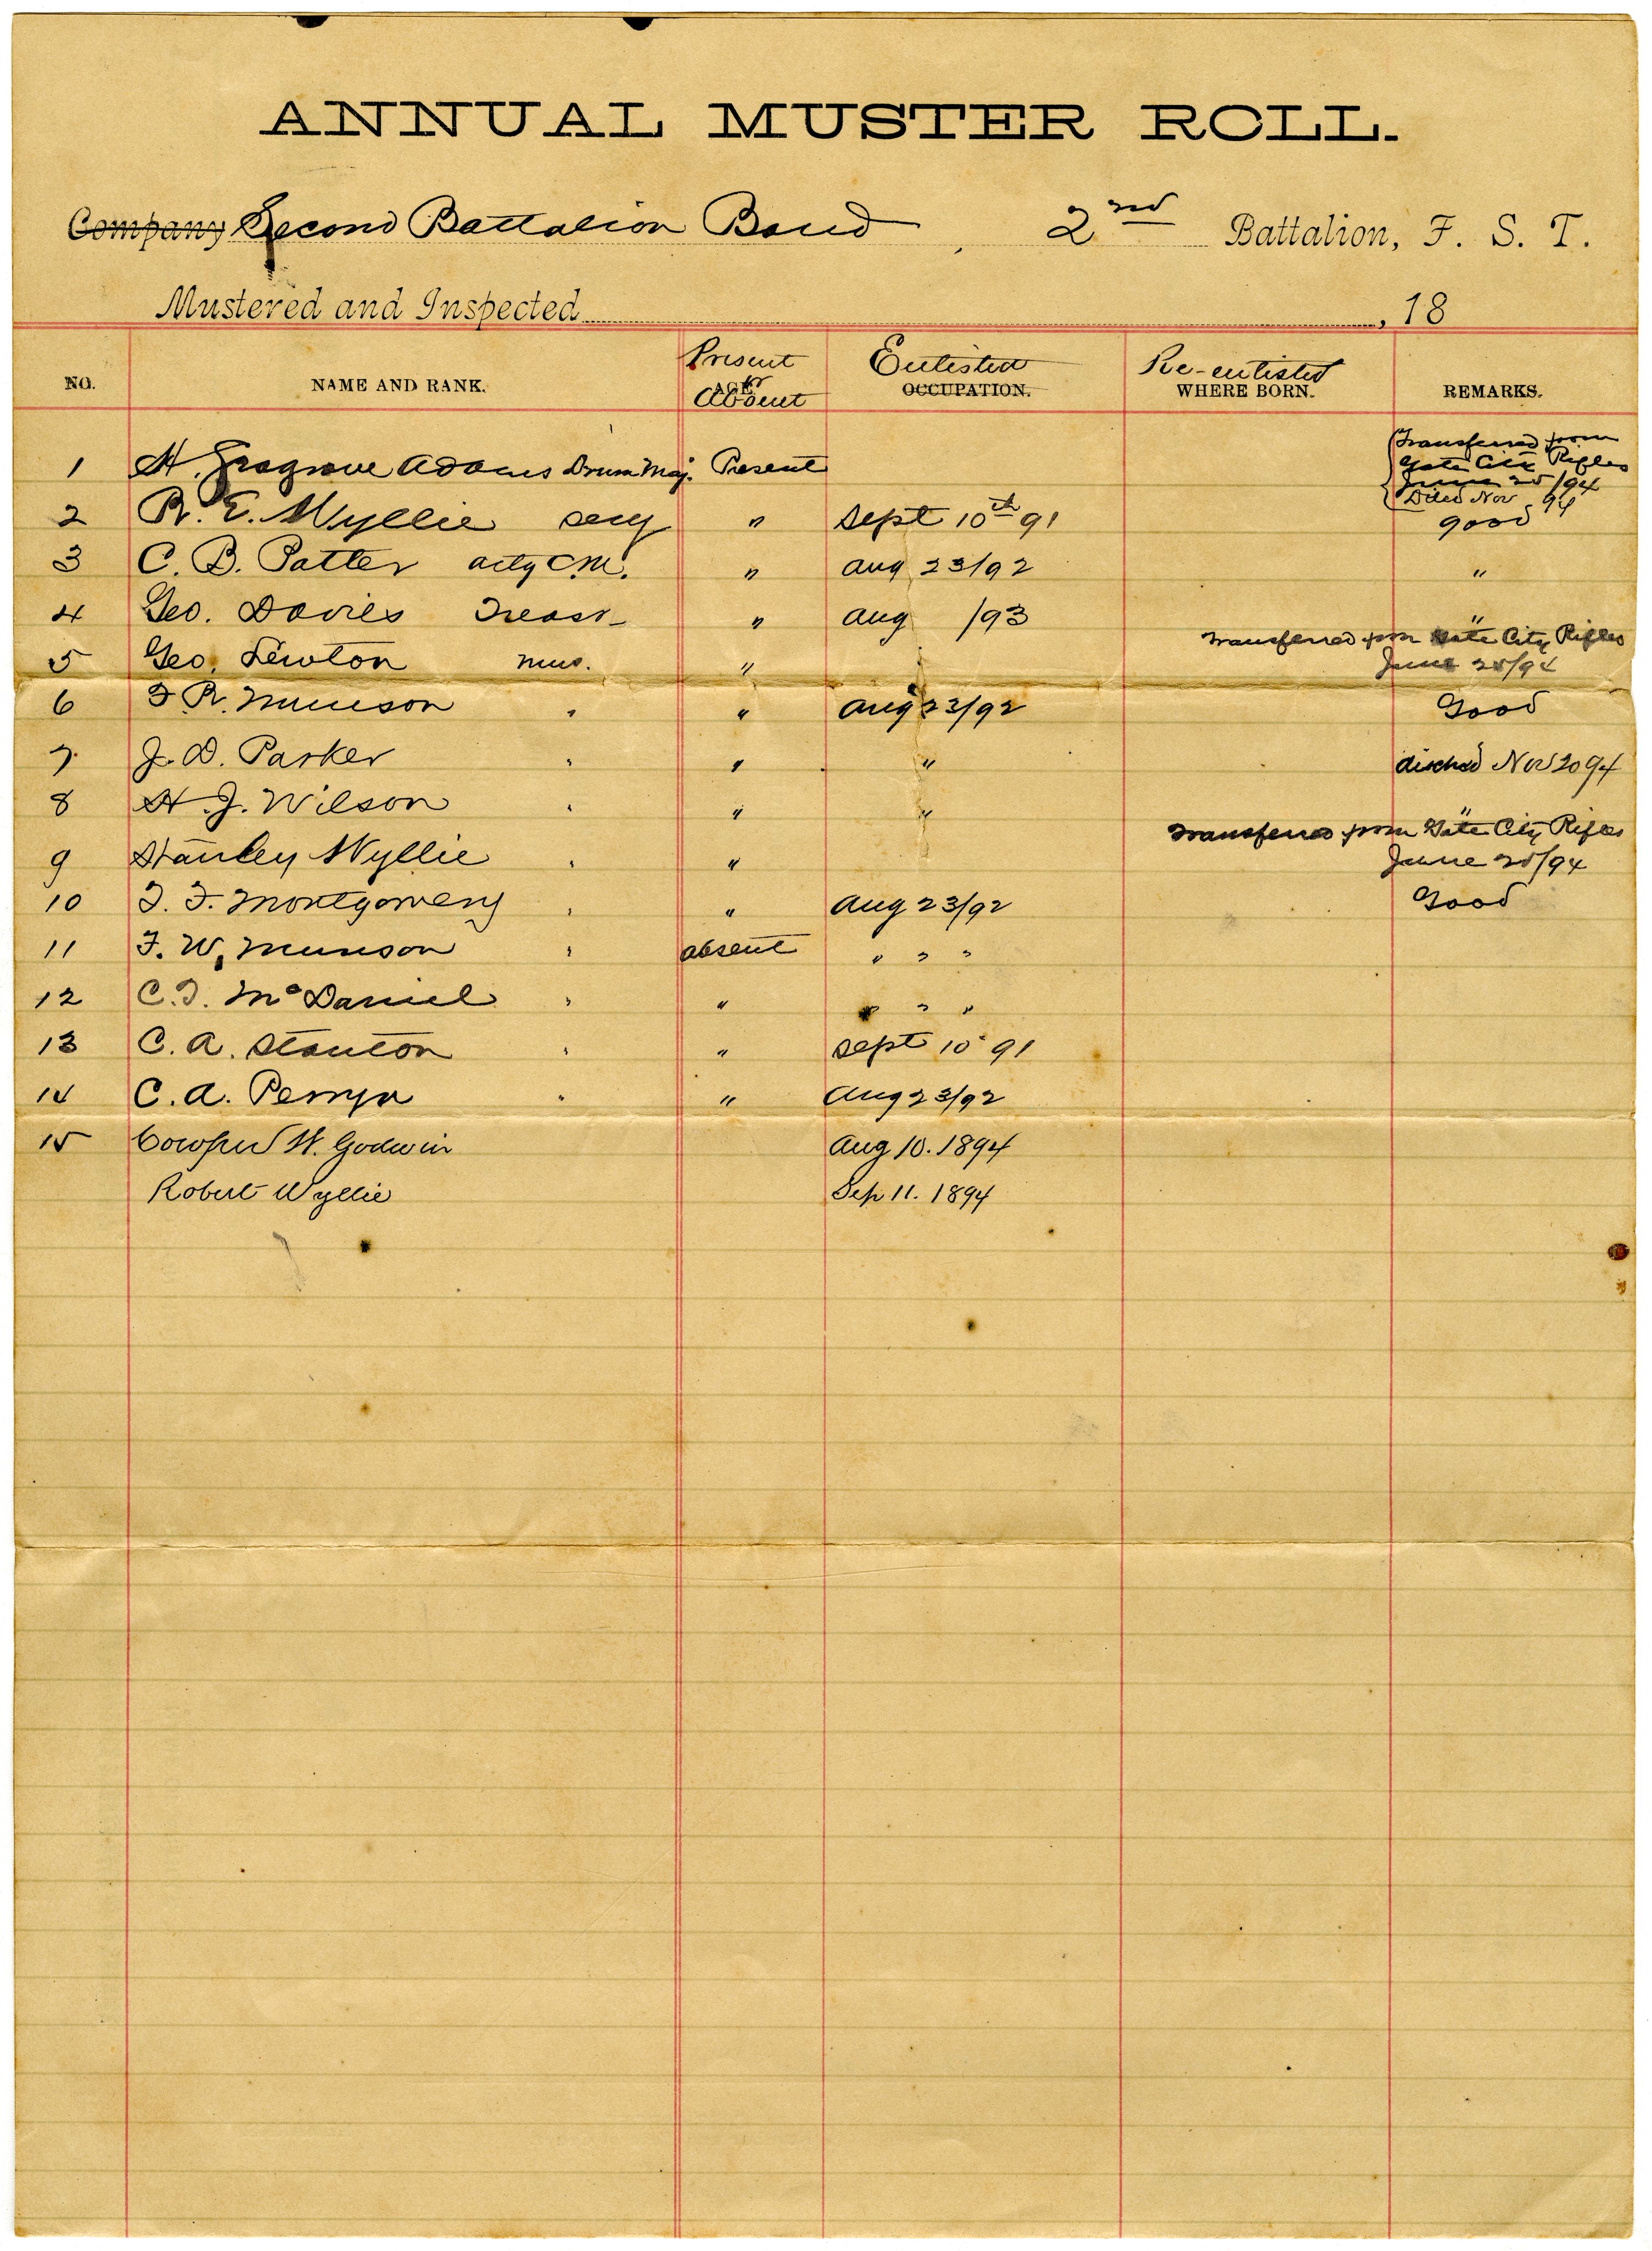 ANNUAL MUSTER ROLL.
Company Second Battalion Band, 2nd Battalion, F. S. T.
Mustered and Inspected , 18
NO. NAME AND RANK. Present or Absent AGE Enlisted OCCUPATION. Re-enlisted WHERE BORN. REMARKS.
1 H. Adams Drum Maj. Present Transferred from
Gate City Rifles
June 25/94
Died Nov 94
2 R. E. Wyllie " Sept 10th 91 good
3 C. B. Patter actg " Aug 23/92 "
4 Geo. Davies Treasr " Aug /93 "
5 Geo. Lewton mus. " Transferred from Gate City Rifles
June 25/94
6 F R. Munson " " Aug 23/92 Good
7. J. D. Parker " " " dischd Nov 20 94
8 H. J. Wilson " " " "
9 Stanley Wyllie " " Transferred from Gate City Rifles
June 25/94
10 T. F. Montgomery " " Aug 23/92 Good
11 F. W. Munson " absent " " "
12 C. T. McDaniel " " " " "
13 C. A. Stanton " " Sept 10 91
14 C. A. " " Aug 23/92
15 W. Godwin Aug 10. 1894
Robert Wyllie Sep 11. 1894